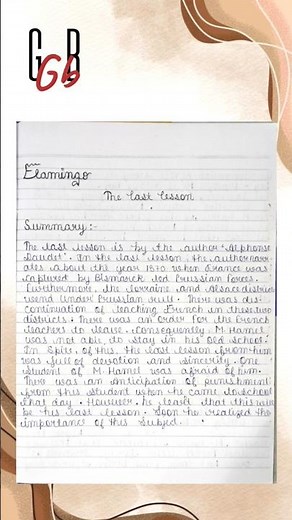 G B
Gb
Flamingo
The last lesson
Summary:-
The last lesson is by the author "Alphonse
Daudet". In the last lesson, the author narr-
ates about the year 1870 when France was
captured by Bismarck led Prussian Forces.
Furthermore, the Lorraine and Alsace district
wend Under Prussian rull. There was dis-
continuation of teaching French in these two
districts. There was an Order for the French
teachers to leave. Consequently M. Hamel
was not able, to stay in his Old school.
In Spite, of this, His last lesson from him
was full of devotion and sincerity. One
student of M. Hamel was afraid of him.
There was an Anticipation of punishment
from this student when he came to school
that day. However, he learnt that this will
be his last lesson. Soon he realized the
importance of this Subject.